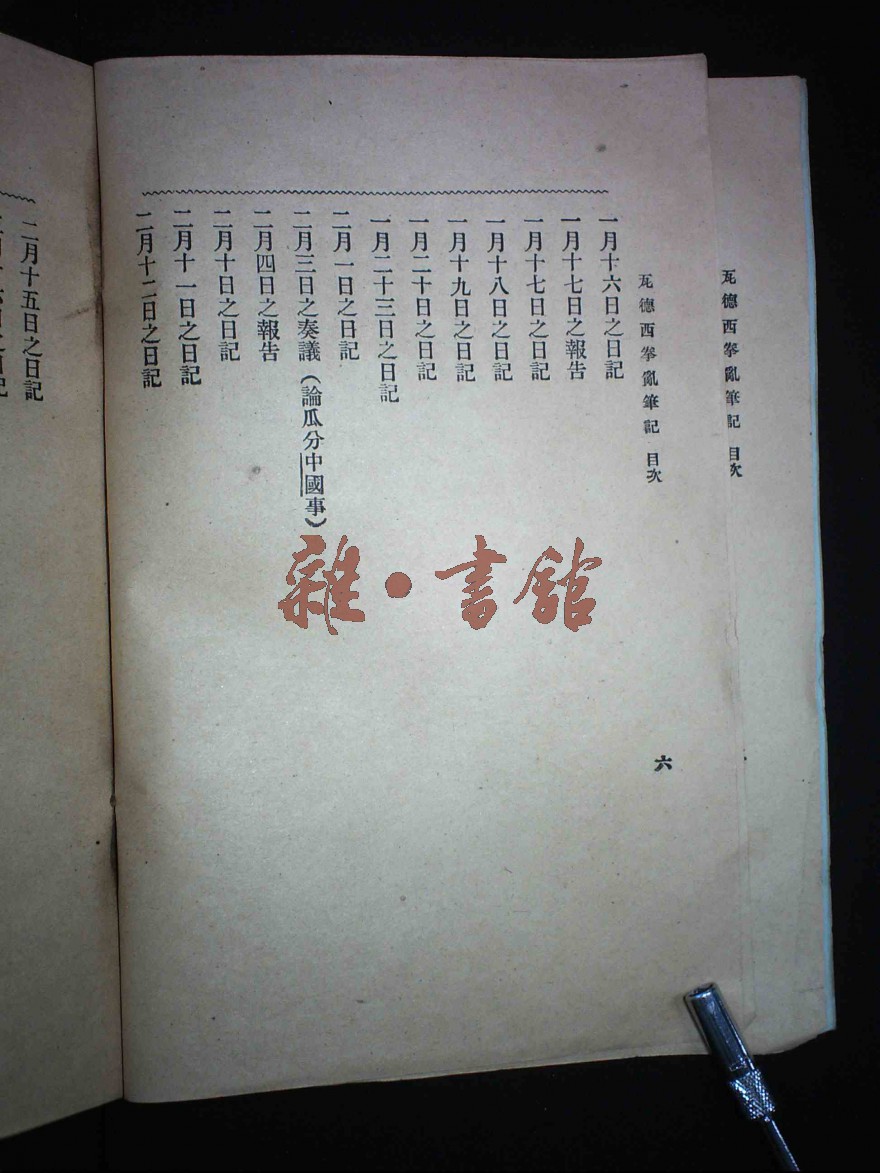 瓦德西拳亂筆記 目次
瓦德西拳亂筆記 目次
六
一月十六日之日記
一月十七日之報告
一月十七日之日記
一月十八日之日記
一月十九日之日記
一月二十日之日記
一月二十三日之日記
二月一日之日記
二月三日之奏議（論瓜分中國事）
二月四日之報告
二月十日之日記
二月十一日之日記
二月十二日之日記
二月十五日之日記
雜·書館